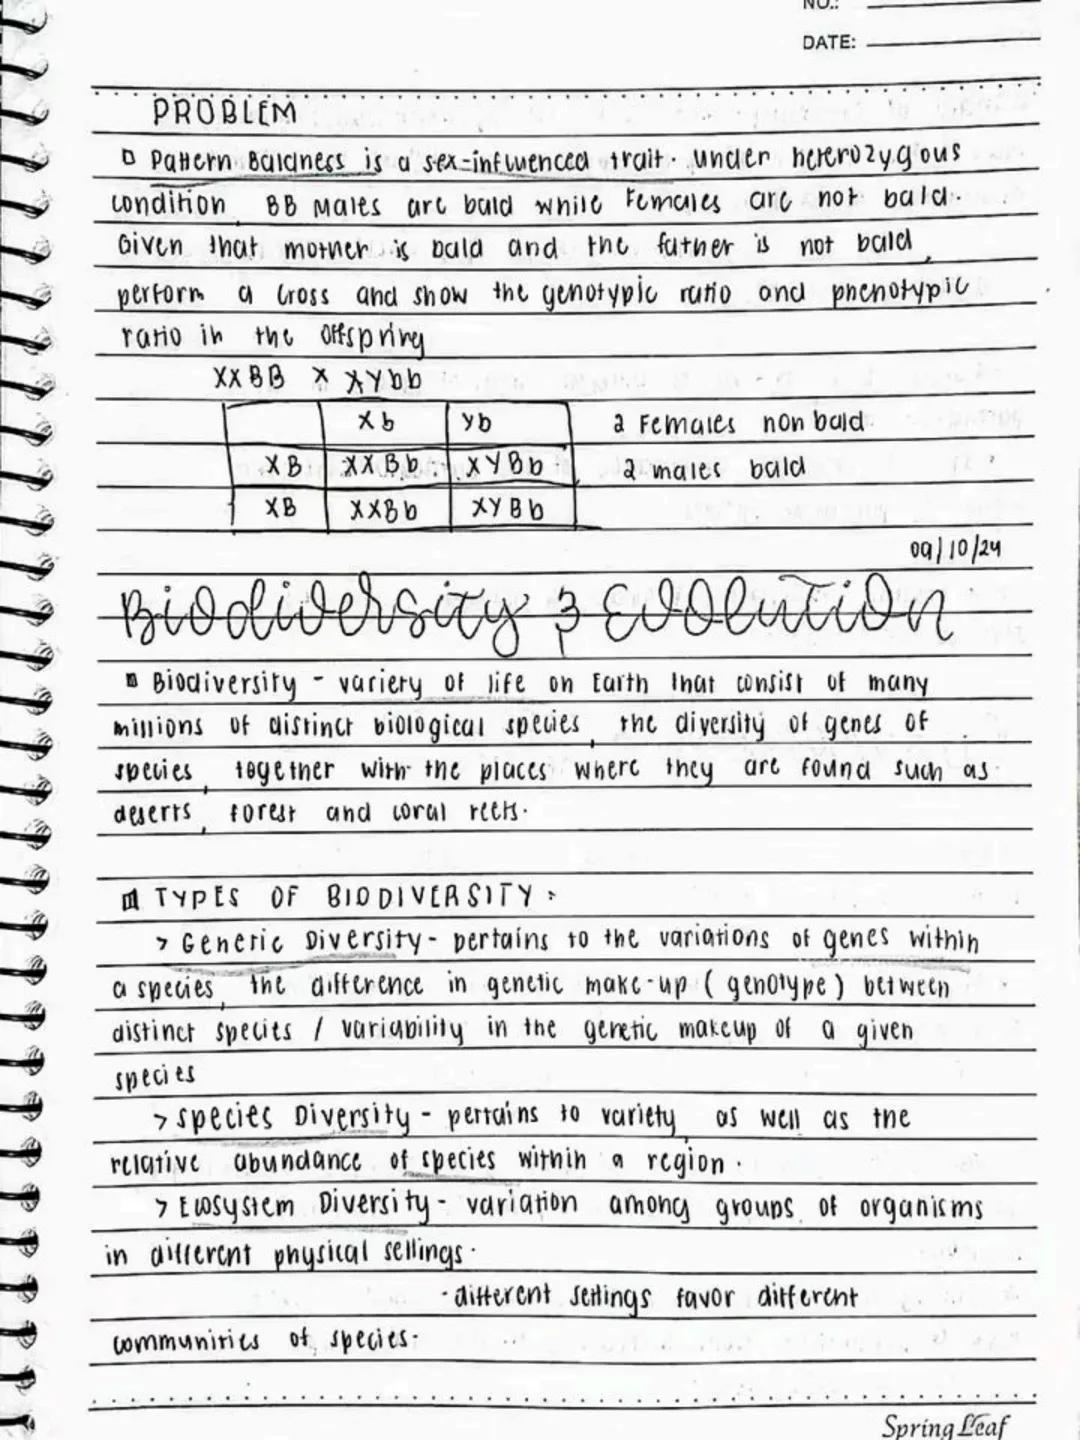 NO.:
DATE:
PROBLEM
Pattern Baldness is a sex-influenced trait. Under heterozygous
condition BB Males are bald while Females are not bald.
Given that mother is bald and the father is not bald,
perform a cross and show the genotypic ratio and phenotypic
ratio in the offspring
XXBB X XYbb
Xb Yb 2 Females non bald
XB XXBb XYBb 2 males bald
XB XXBb XYBb
09/10/24
Biodiversity & Evolution
Biodiversity - variety of life on Earth that consist of many
millions of distinct biological species, the diversity of genes of
species, together with the places where they are found such as
deserts, forest and coral reefs.
TYPES OF BIODIVERSITY:
> Genetic Diversity - pertains to the variations of genes within
a species, the difference in genetic make-up (genotype) between
distinct species / variability in the genetic makeup of a given
species
> Species Diversity - pertains to variety, as well as the
relative abundance of species within a region.
> Ecosystem Diversity - variation among groups of organisms
in different physical settings.
- different settings favor different
communities of species.
Spring Leaf